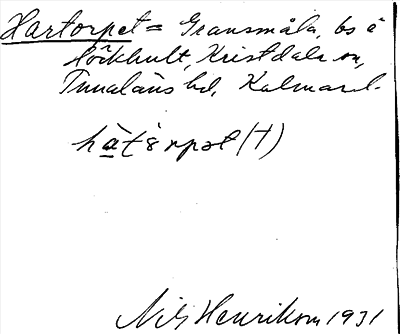 Hartorpet = Gransmåla, bs å
Lökhult, Kristdala sn,
Tunaläns hd, Kalmar l.
hàt̀ɛrpət (†)
Nils Henrikson 1931